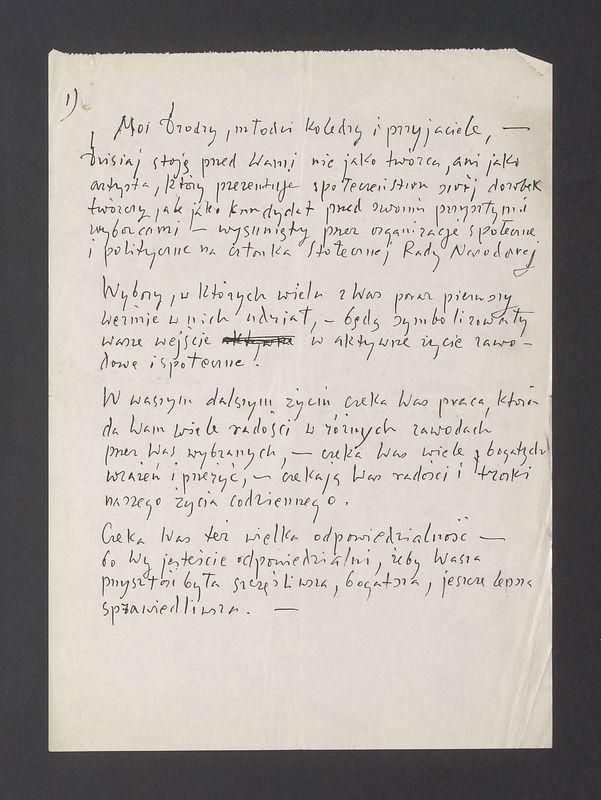 1)
Moi Drodzy, młodzi koledzy i przyjaciele, —
Dzisiaj stoję przed Wami nie jako twórca, ani jako
artysta, który prezentuje społeczeństwu swój dorobek
twórczy, ale jako kandydat przed swoimi przyszłymi
wyborcami — wysunięty przez organizacje społeczne
i polityczne na członka Stołecznej Rady Narodowej
Wybory, w których wielu z Was poraz pierwszy
weźmie w nich udział, — będą symbolizowały
wasze wejście aktywne w aktywne życie zawo-
dowe i społeczne.
W waszym dalszym życiu czeka Was praca, która
da Wam wiele radości w różnych zawodach
przez Was wybranych, — czeka Was wiele, bogatych
wrażeń i przeżyć, — czekają Was radości i troski
naszego życia codziennego.
Czeka Was też wielka odpowiedzialność —
bo Wy jesteście odpowiedzialni, żeby Wasza
przyszłość była szczęśliwsza, bogatsza, jeszcze lepsza
sprawiedliwsza. —